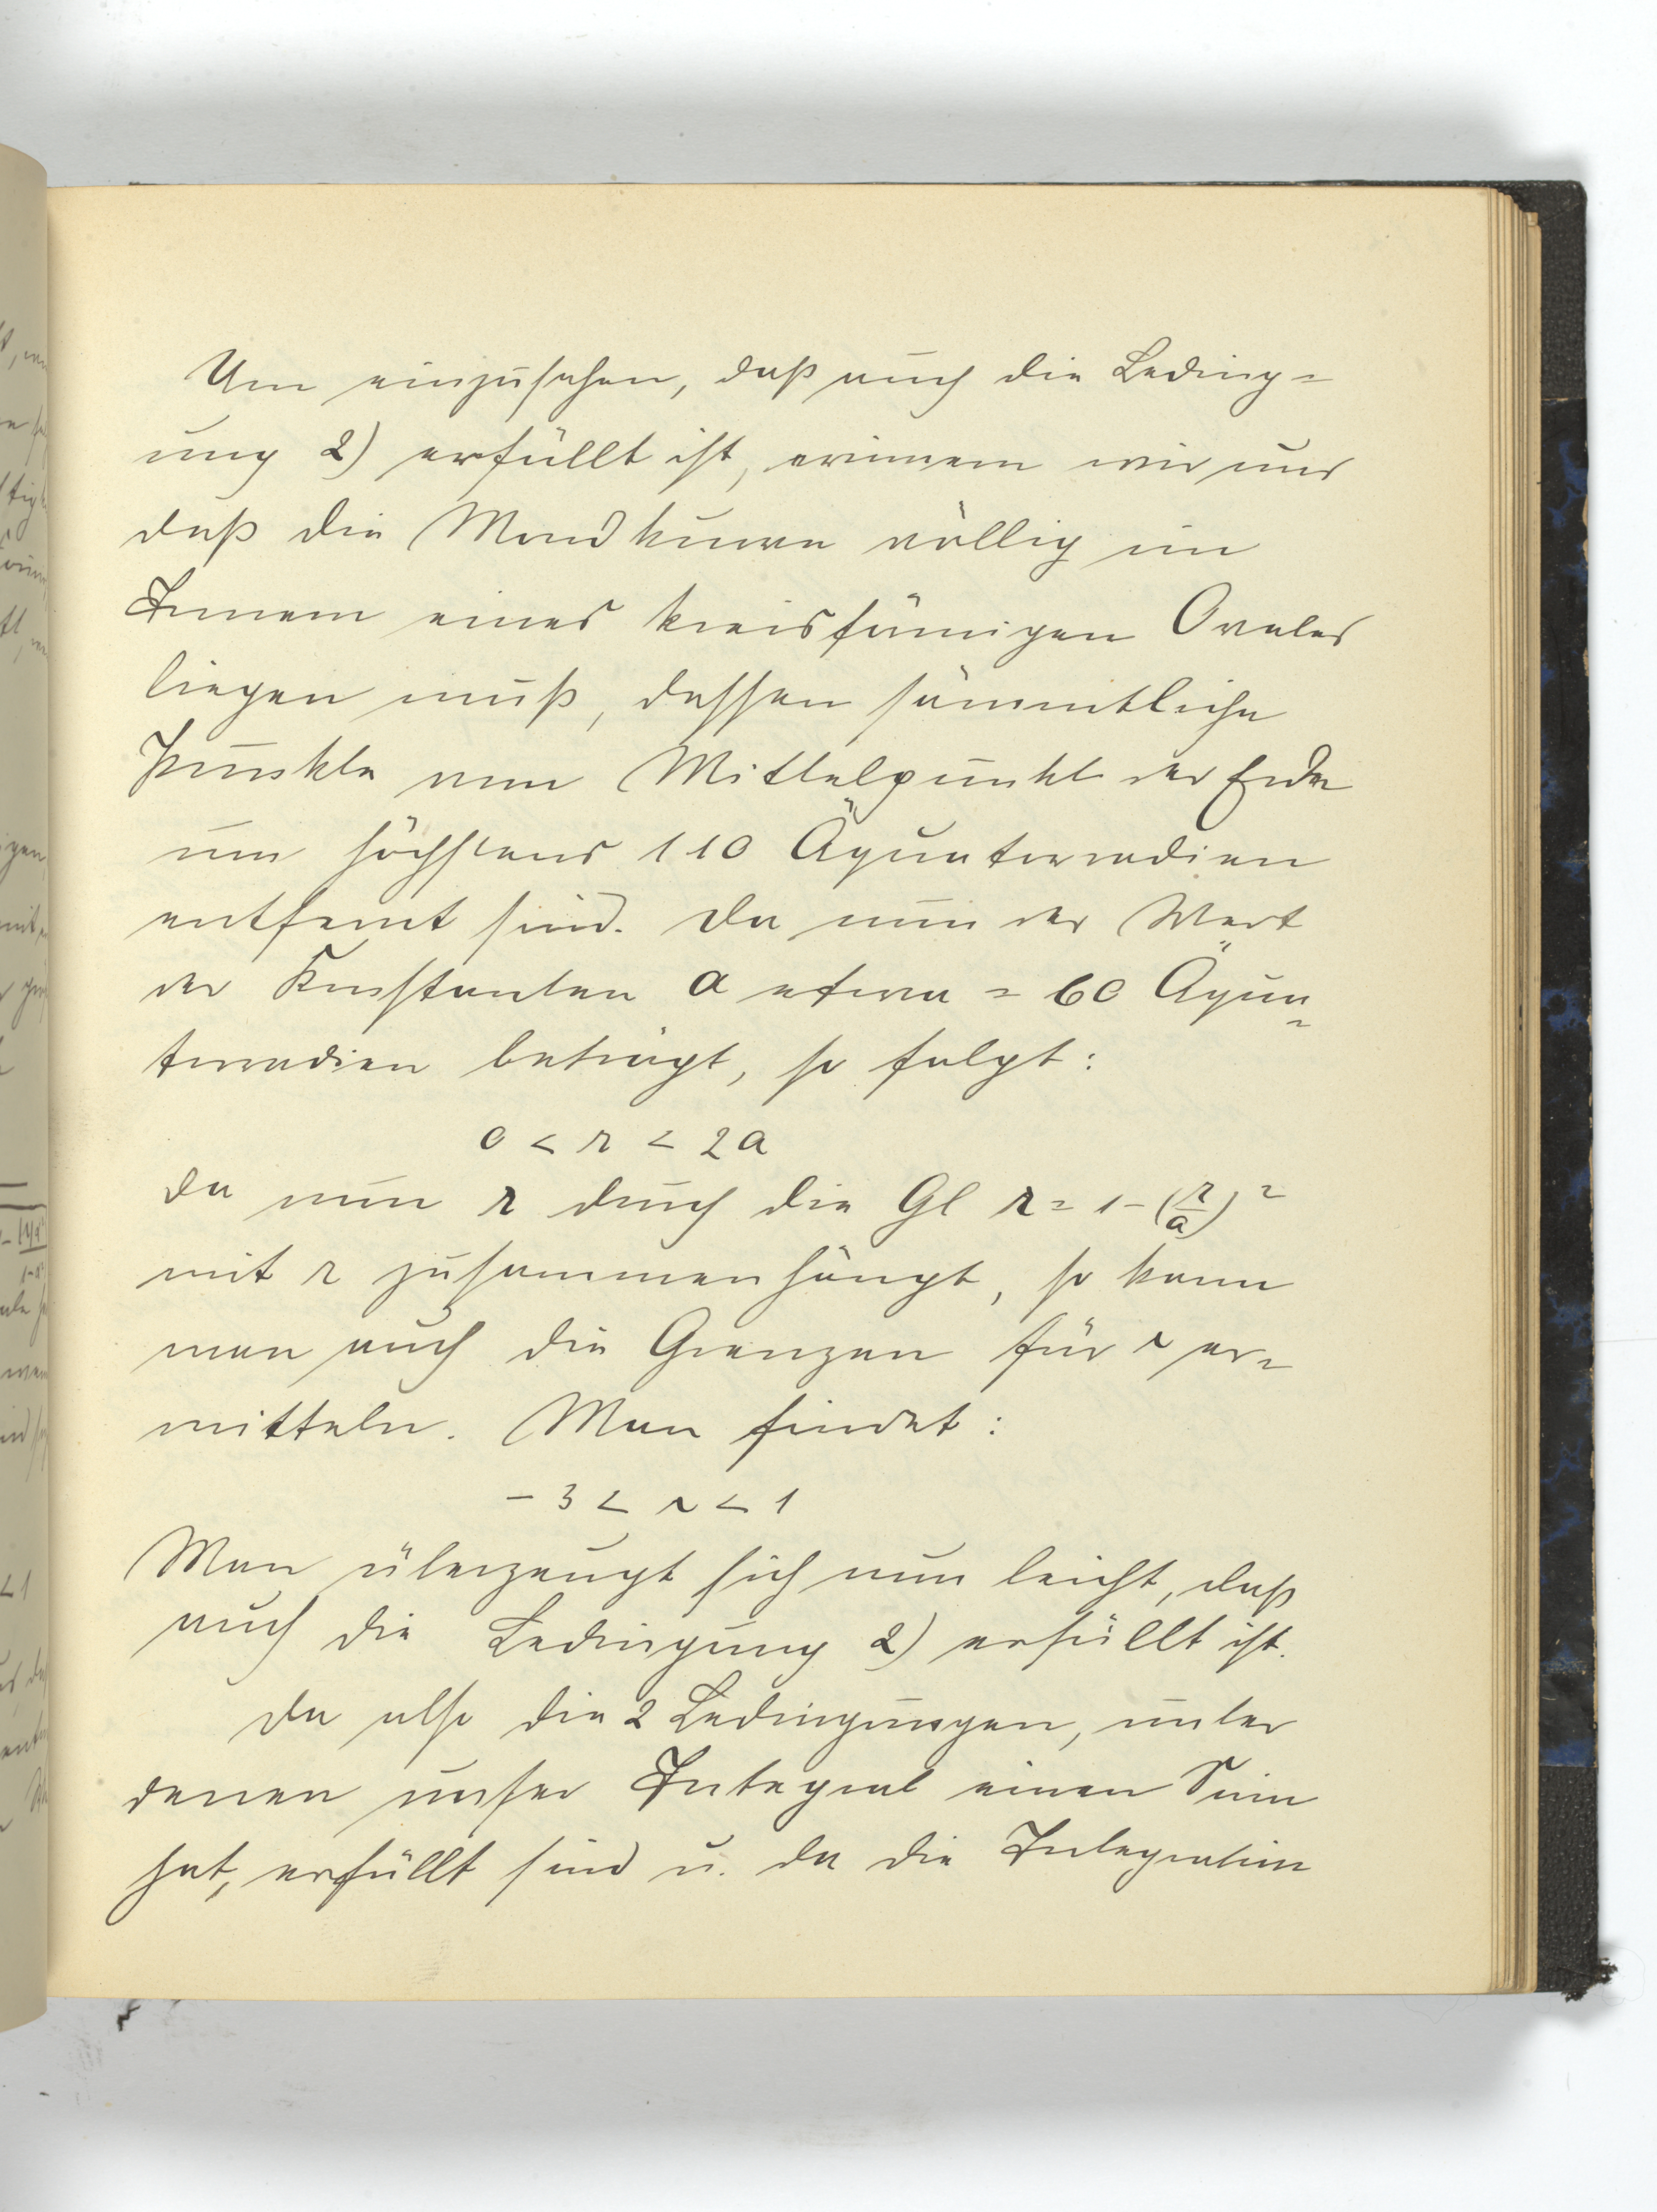 Um einzusehen, daß auch die Beding=
ung 2) erfüllt ist, erinnern wir uns
daß die Mondkurve völlig im
Innern eines kreisförmigen Ovales
liegen muß, dessen sämmtliche
Punkte vom Mittelpunkt der Erde
um höchstens 110 Äquatorradien
entfernt sind. Da nun der Wert
der Konstanten a etwa = 60 Äqua=
torradien beträgt, so folgt:
0 < r < 2a
da nun r durch die Gl r = 1-(r/a)²
mit r zusammenhängt, so kann
man auch die Grenzen für r er=
mitteln. Man findet:
- 3 < r < 1
Man überzeugt sich nun leicht, daß
auch die Bedingung 2) erfüllt ist.
Da also die 2 Bedingungen, unter
denen unser Integral einen Sinn
hat, erfüllt sind u. da die Integration